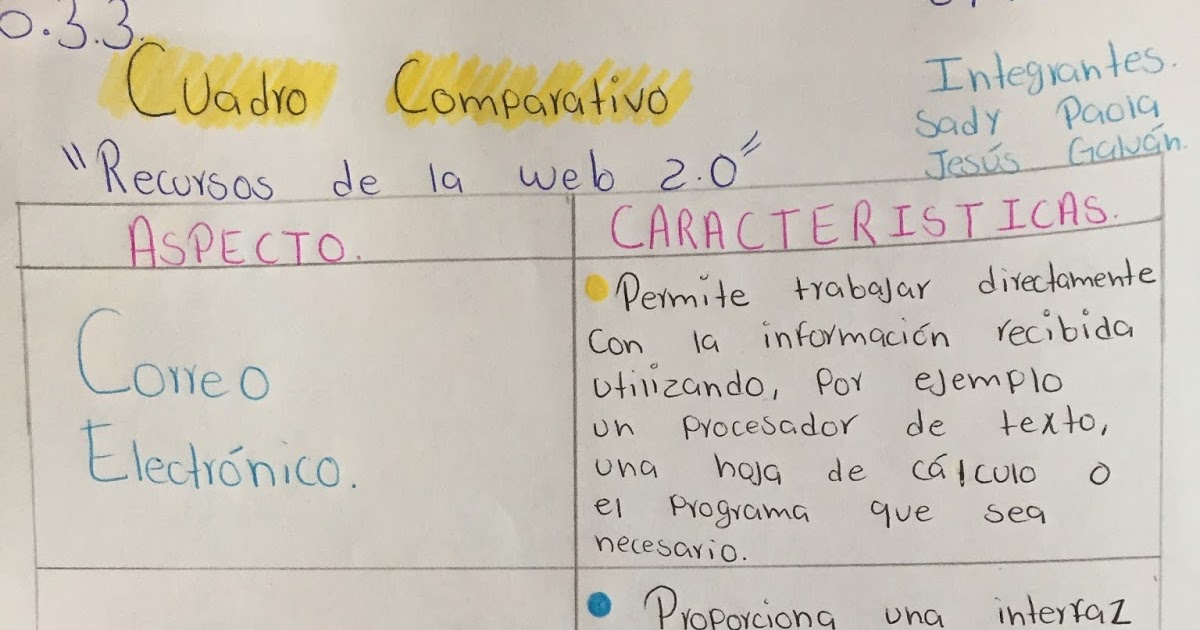 0.3.3.
Cuadro Comparativo
Integrantes.
Sady Paola
Jesús Galván.
"Recursos de la web 2.0"
ASPECTO.
CARACTERISTICAS.
Correo
Electrónico.
Permite trabajar directamente
con la información recibida
utilizando, por ejemplo
un procesador de texto,
una hoja de cálculo o
el programa que sea
necesario.
Proporciona una interfaz